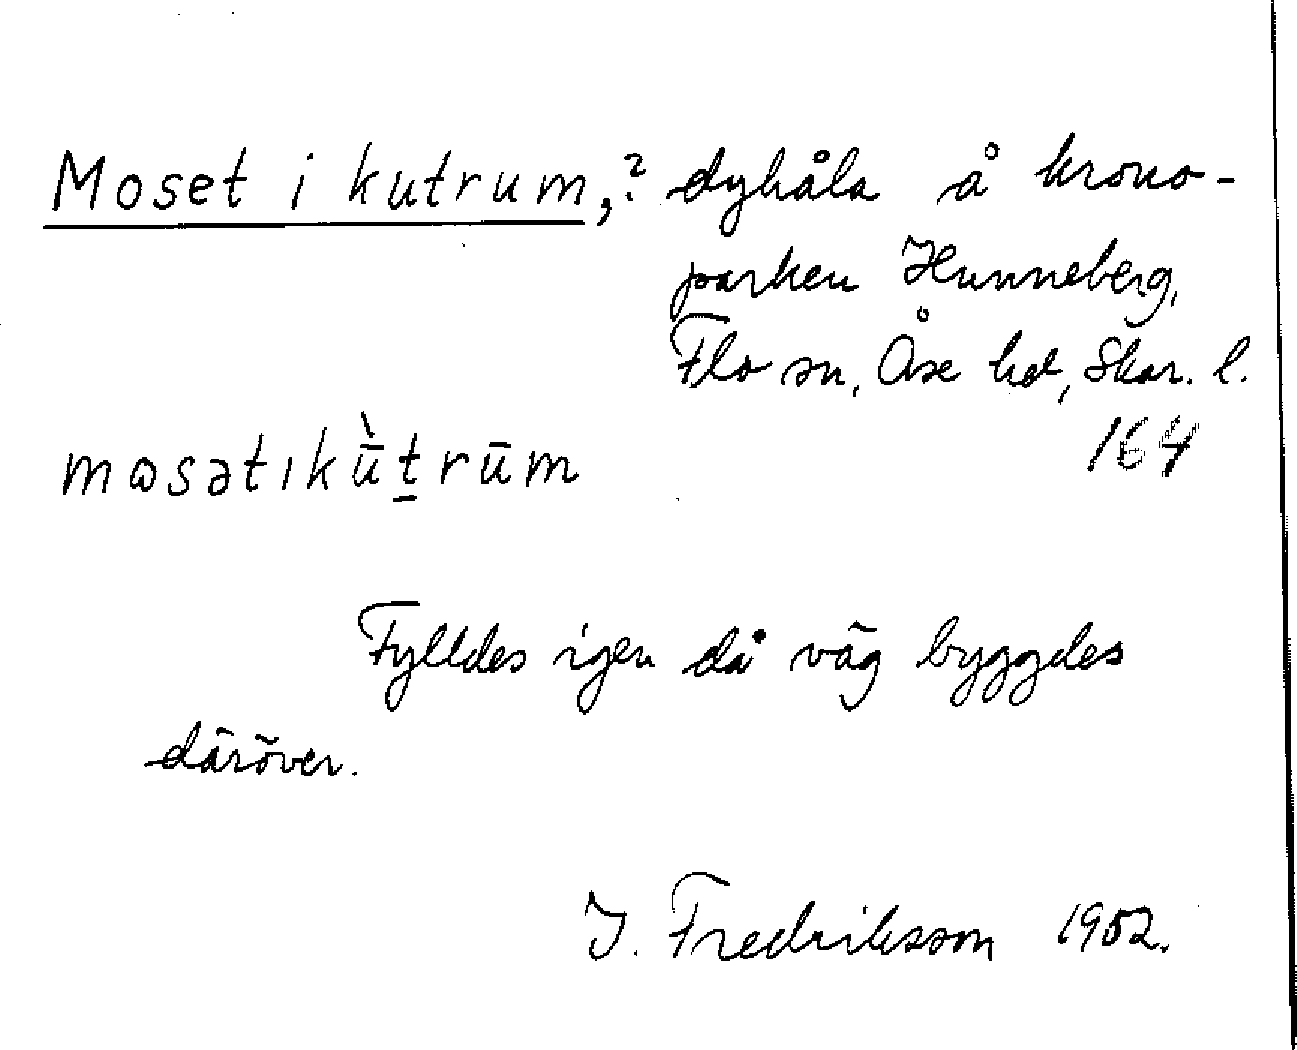 Moset i kutrum,? dyhåla å krono-
parken Hunneberg,
Flo sn, Åse hd, Skar. l.
164
mɷsətıkū̀t̲rūm
Fylldes igen då väg byggdes
däröver.
I. Fredriksson 1952.